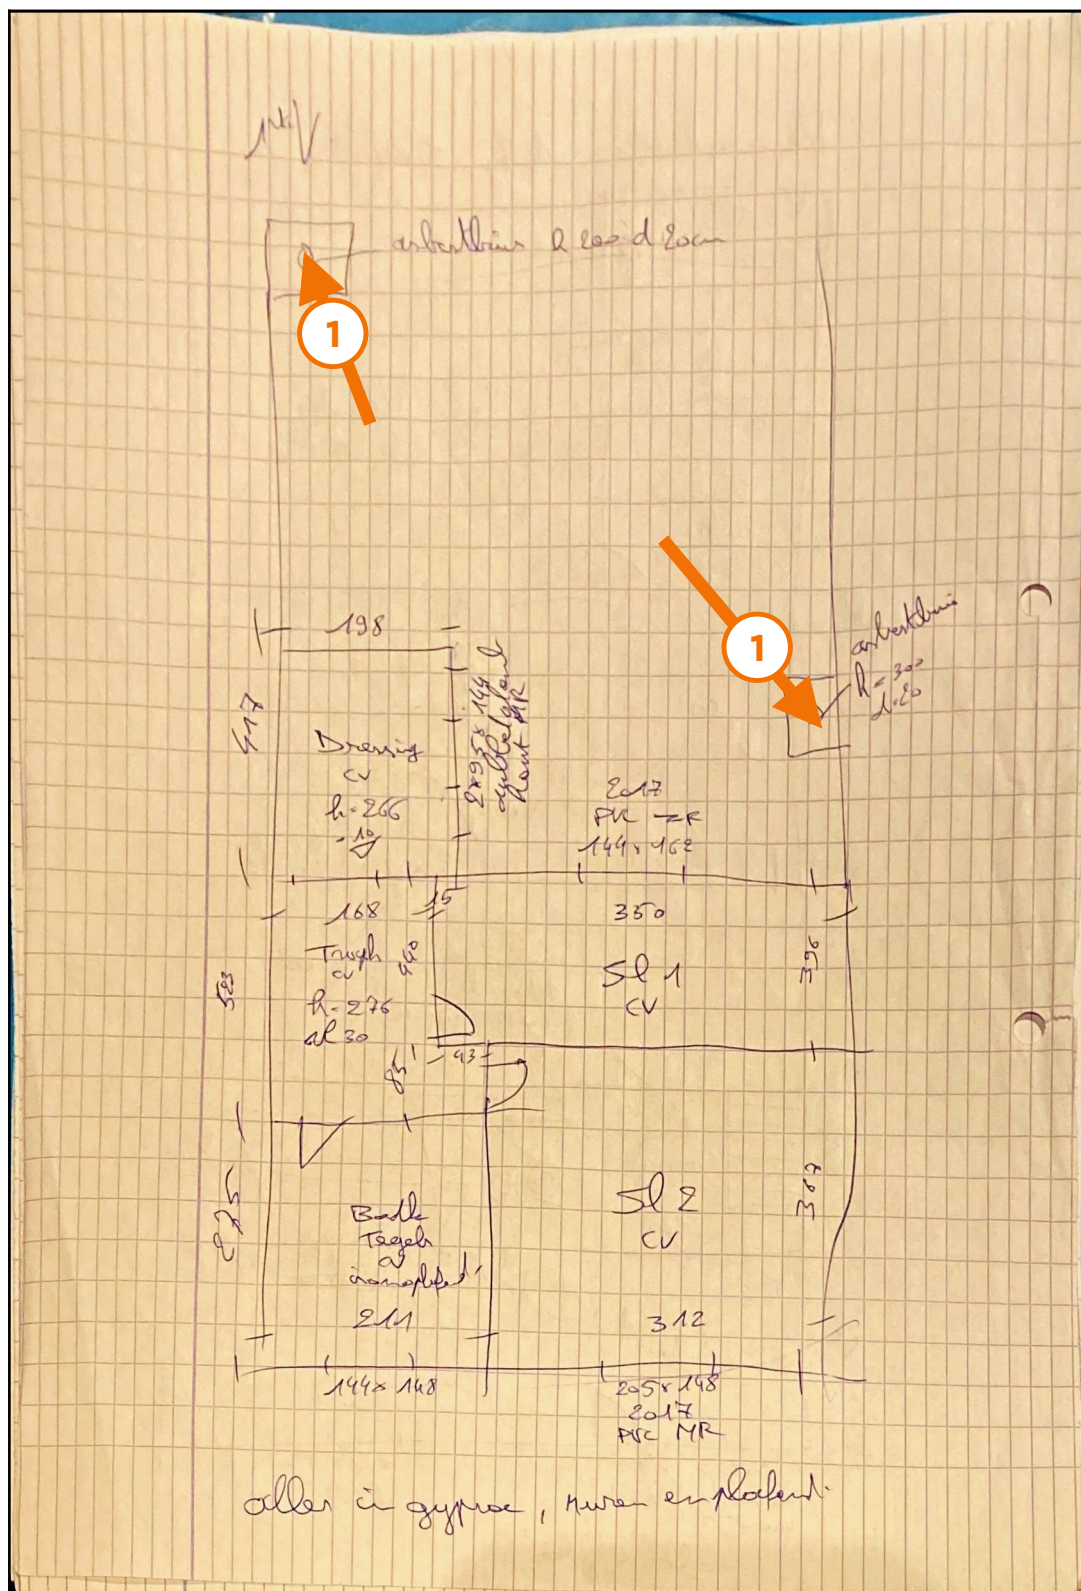 1ste V
asbestbuis h 200 d 20cm
1
1
asbestbuis
h=300
d=20
198
417
Dressing
CV
h=266
-10
2x95x144
dubbelglas
hout MR
2017
PVC ZR
144x162
168
15
350
Traph
CV
440
h=276
al 30
523
Sl 1
CV
396
85
43
275
Badk
Tegels
CV
211
Sl 2
CV
367
312
144x148
205x148
2017
PVC MR
alles in gyproc, muren en plafond.